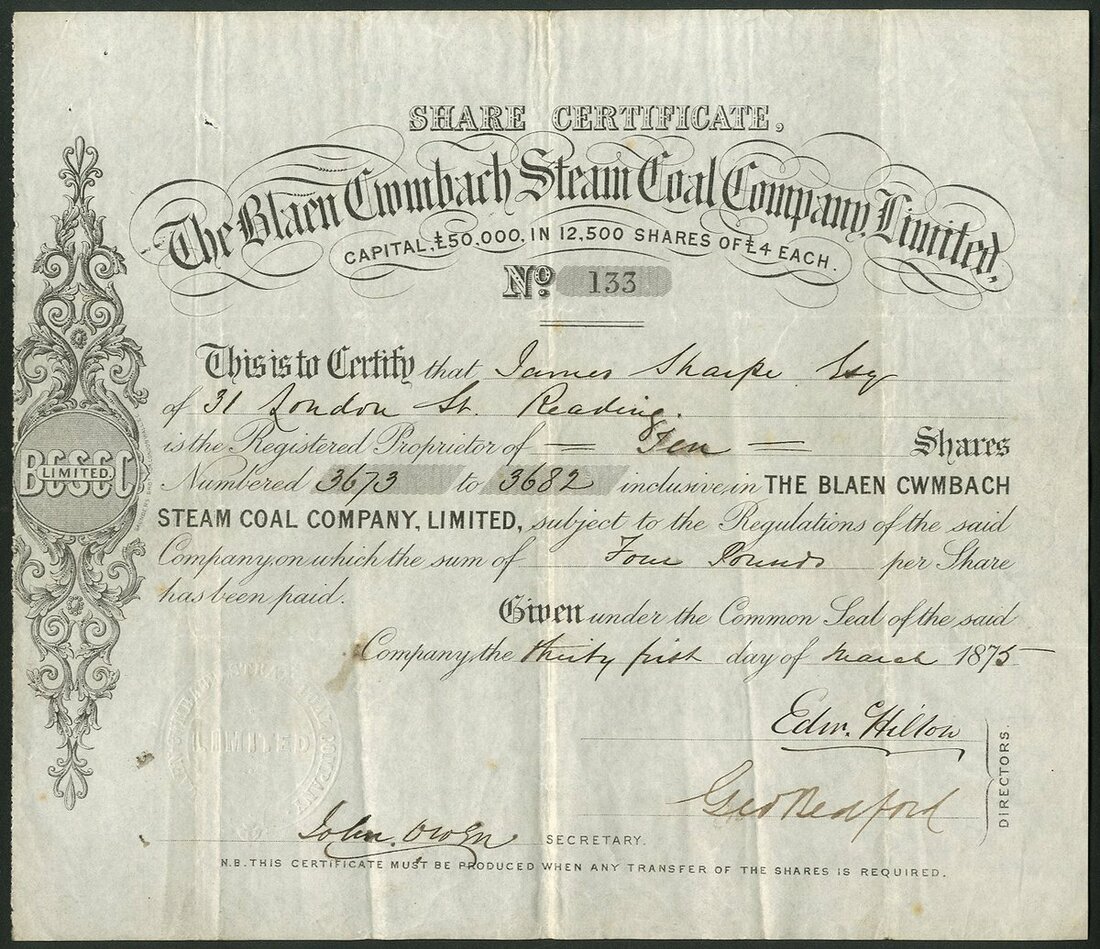 SHARE CERTIFICATE,
The Blaen Cwmbach Steam Coal Company, Limited,
CAPITAL, £50,000, IN 12,500 SHARES OF £4 EACH.
No. 133
This is to Certify that James Sharpe Esq
of 31 London St. Reading.
is the Registered Proprietor of = Ten = Shares
Numbered 3673 to 3682 inclusive, in THE BLAEN CWMBACH
STEAM COAL COMPANY, LIMITED, subject to the Regulations of the said
Company, on which the sum of Four Pounds per Share
has been paid.
Given under the Common Seal of the said
Company, the thirty first day of March 1875
Edw. Hilton
Geo Bedford
DIRECTORS.
John Owen SECRETARY.
N.B. THIS CERTIFICATE MUST BE PRODUCED WHEN ANY TRANSFER OF THE SHARES IS REQUIRED.
BCSCC
LIMITED
LIMITED